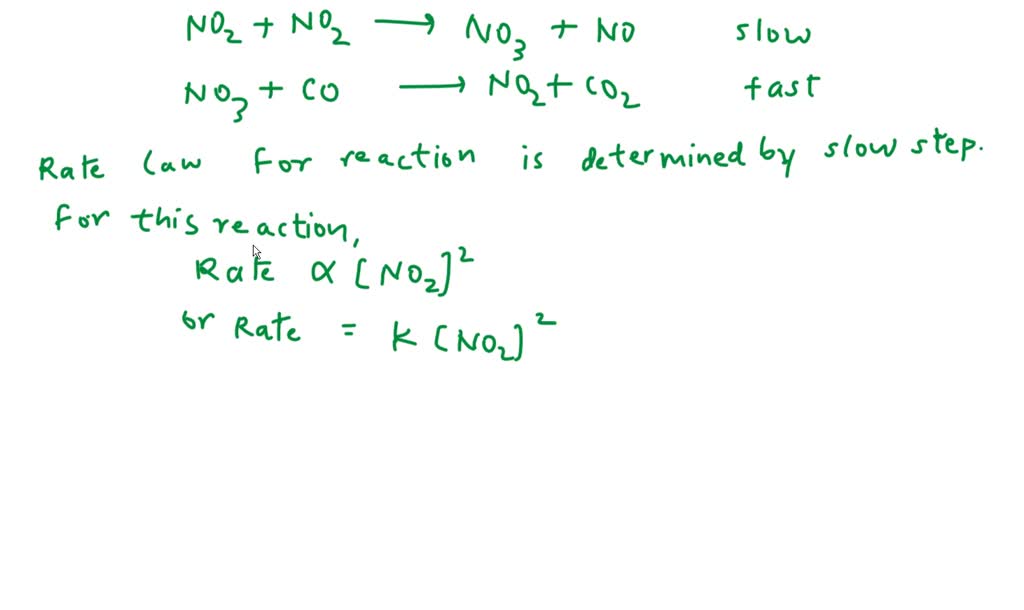 NO₂ + NO₂ → NO₃ + NO slow
NO₃ + CO → NO₂ + CO₂ fast
Rate law for reaction is determined by slow step.
For this reaction,
Rate ∝ [NO₂]²
or Rate = K [NO₂]²